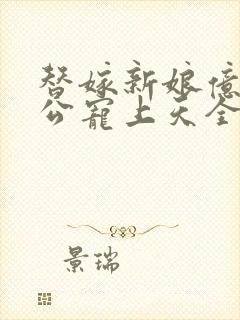 替嫁新娘億
公寵上天全
景瑞